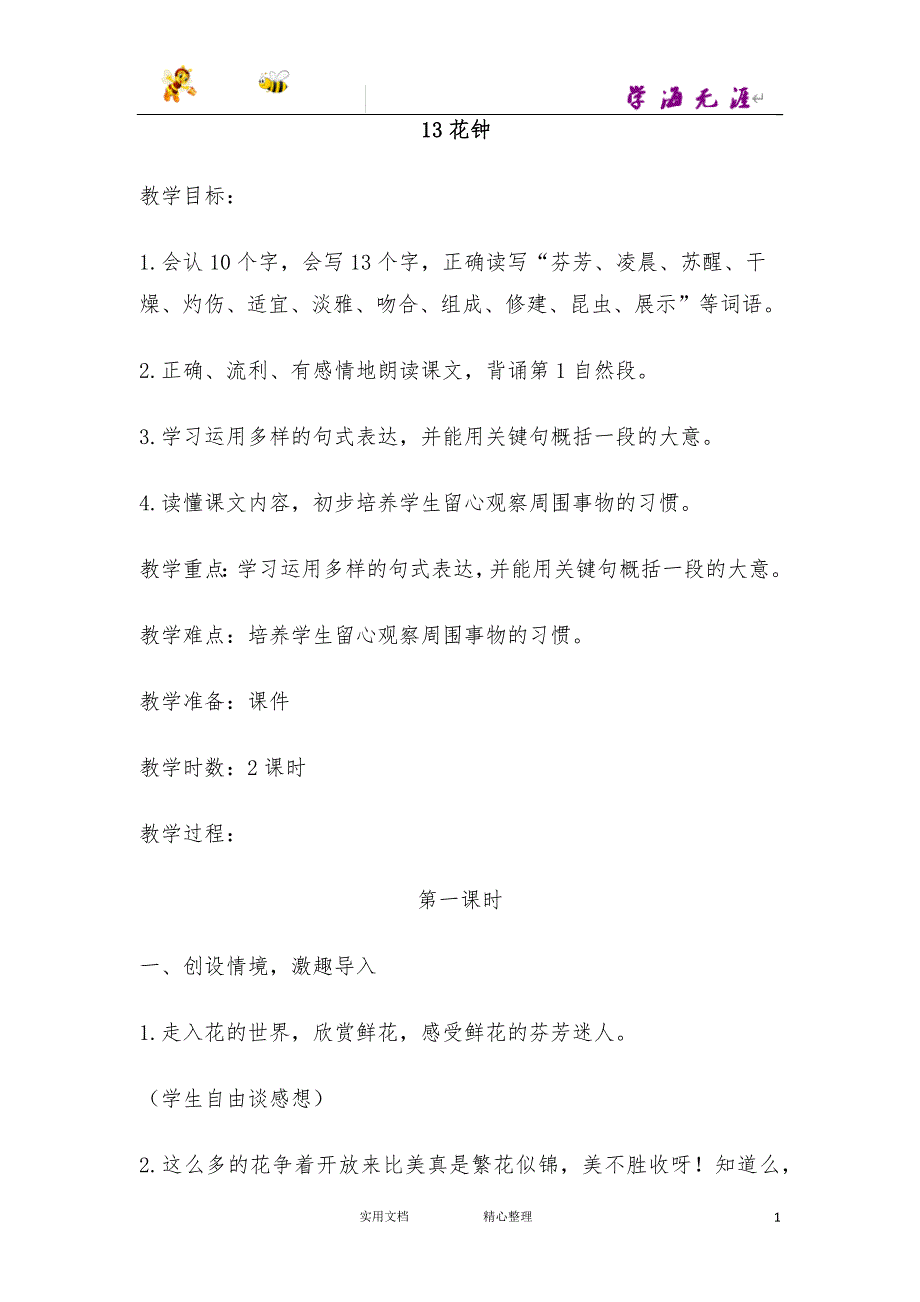 学海无涯↵
13 花钟
教学目标：
1.会认 10 个字，会写 13 个字，正确读写“芬芳、凌晨、苏醒、干
燥、灼伤、适宜、淡雅、吻合、组成、修建、昆虫、展示”等词语。
2.正确、流利、有感情地朗读课文，背诵第 1 自然段。
3.学习运用多样的句式表达，并能用关键句概括一段的大意。
4.读懂课文内容，初步培养学生留心观察周围事物的习惯。
教学重点：学习运用多样的句式表达，并能用关键句概括一段的大意。
教学难点：培养学生留心观察周围事物的习惯。
教学准备：课件
教学时数：2 课时
教学过程：
第一课时
一、创设情境，激趣导入
1.走入花的世界，欣赏鲜花，感受鲜花的芬芳迷人。
（学生自由谈感想）
2.这么多的花争着开放来比美真是繁花似锦，美不胜收呀！知道么，
实用文档 精心整理 1